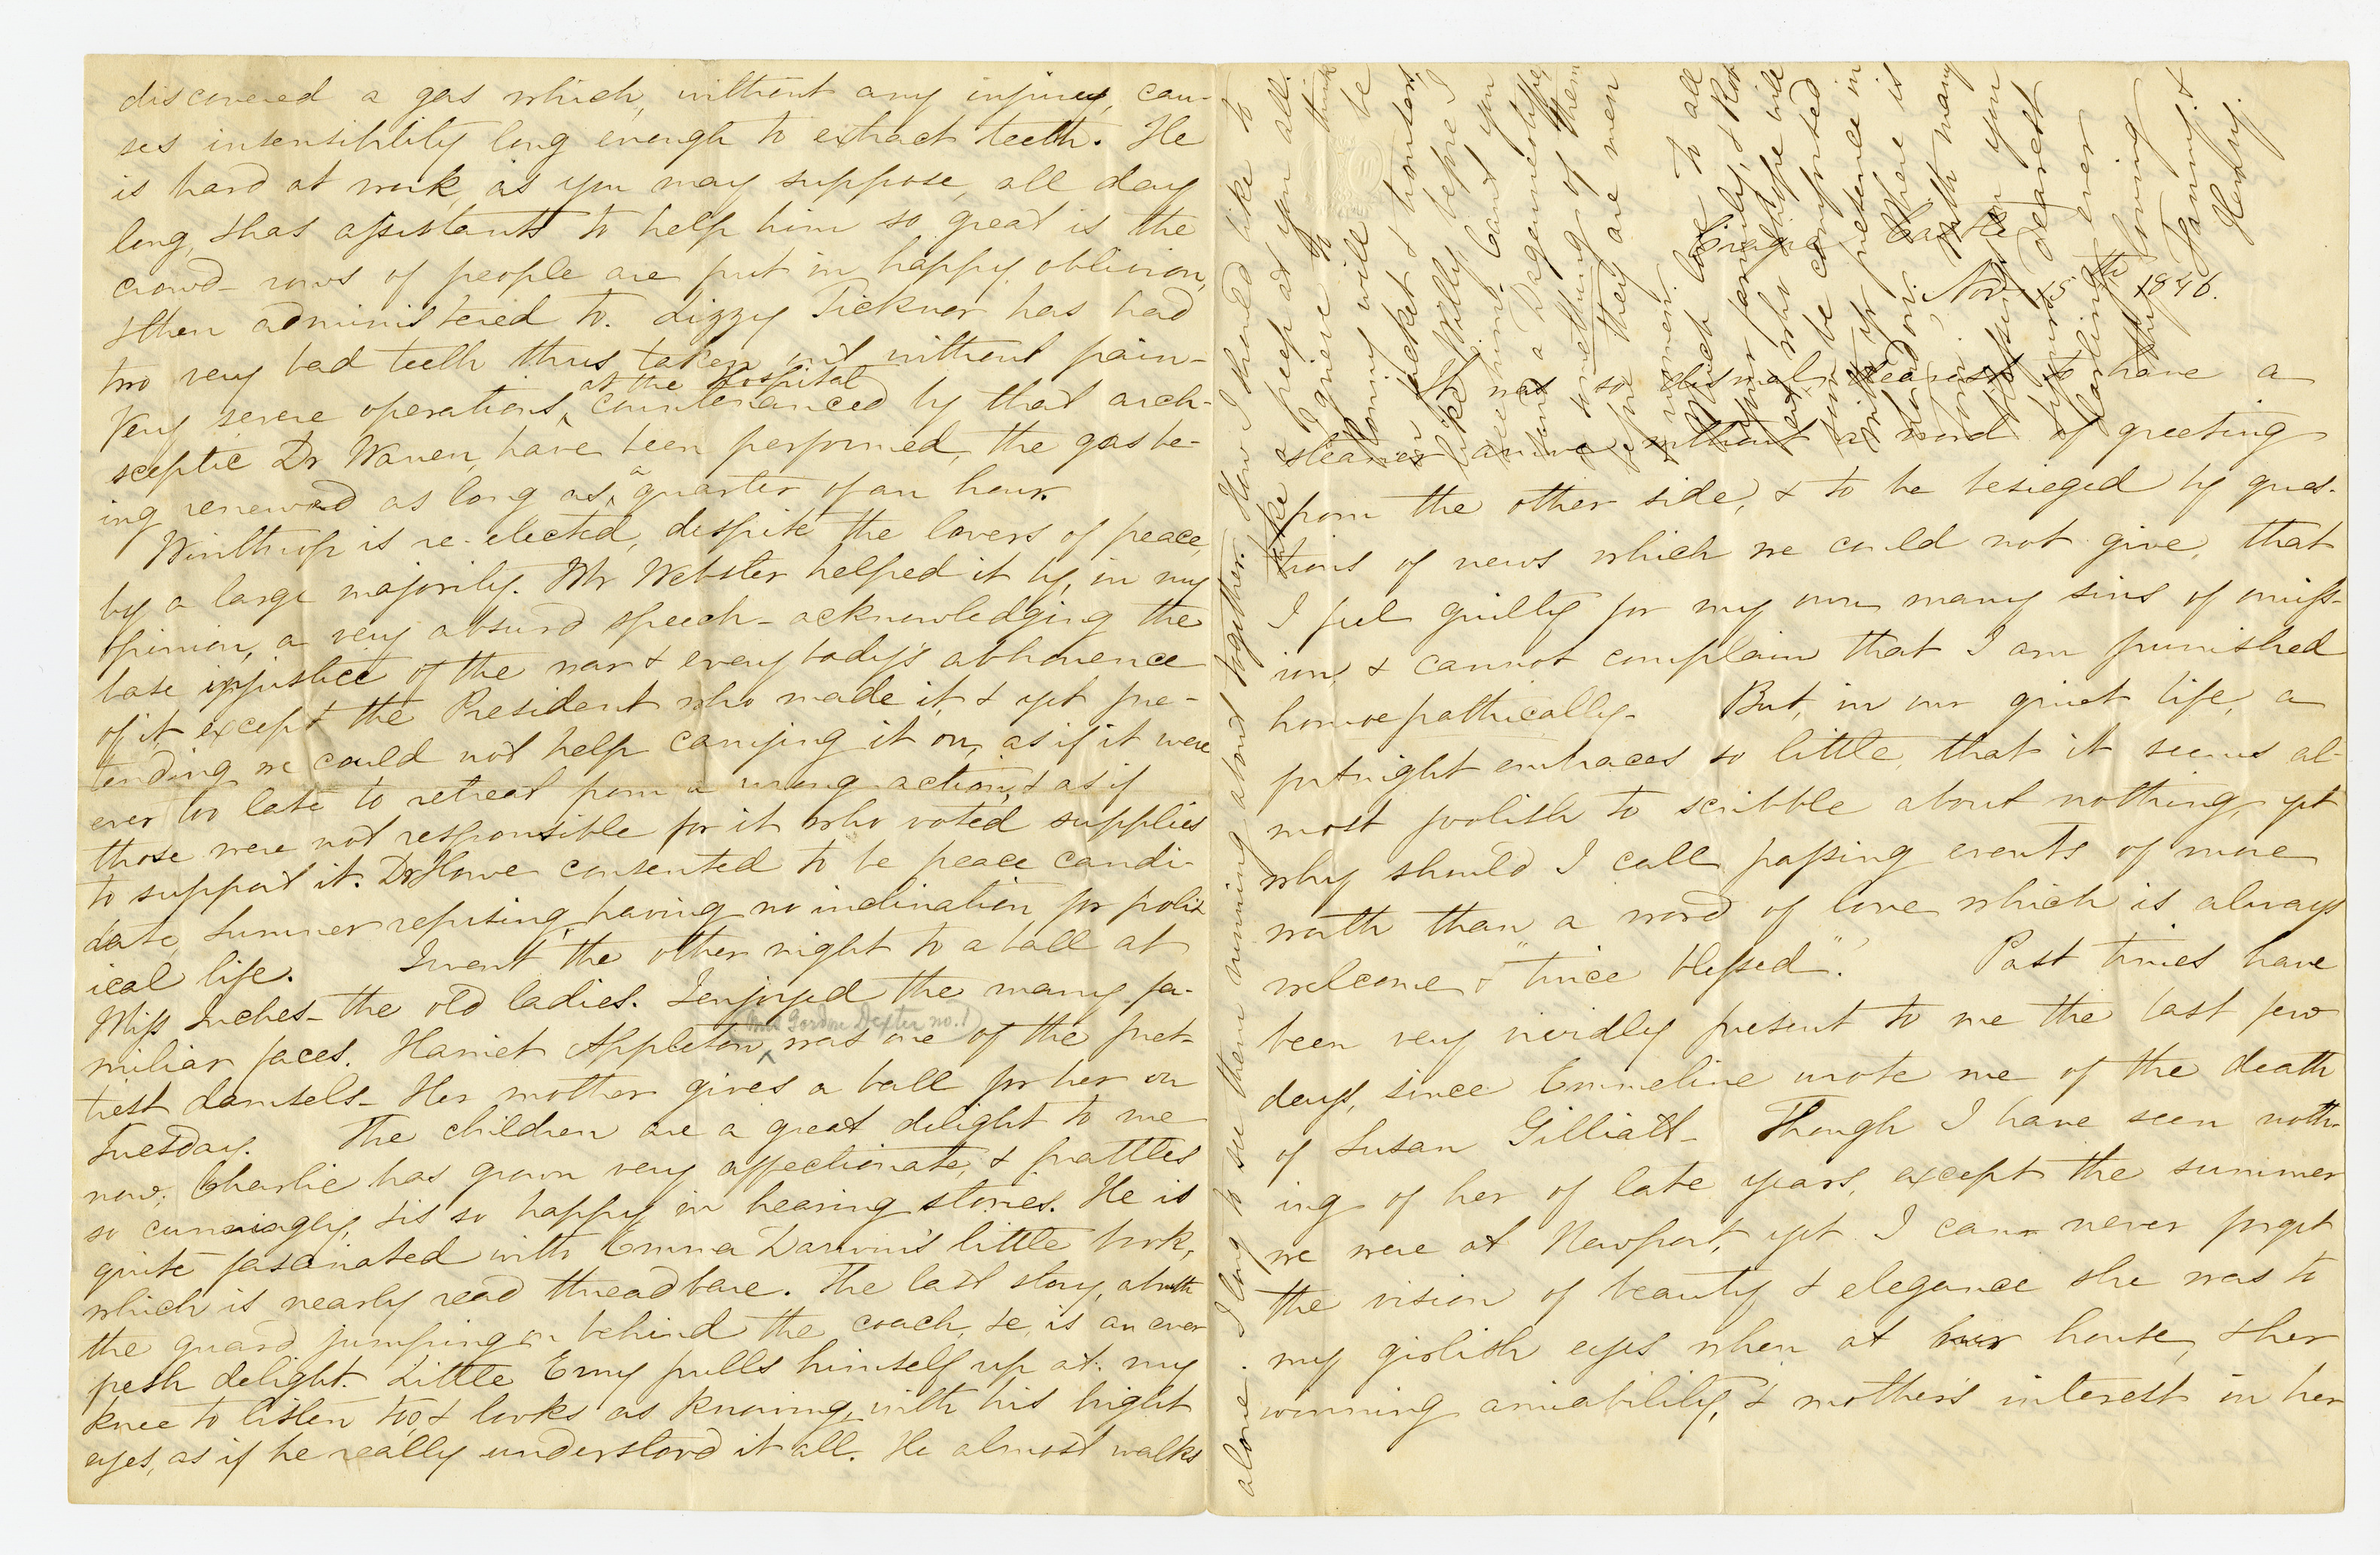 Craigie Castle
Nov. 15th 1846.
It was so dismal, dearest, to have a
steamer arrive without a word of greeting
from the other side, & to be besieged by ques-
tions of news which we could not give, that
I feel guilty for my own many sins of omiss-
ion, & cannot complain that I am punished
homoeopathically. But, in our quiet life, a
fortnight embraces so little, that it seems al-
most foolish to scribble about nothing, yet
why should I call passing events of more
worth than a word of love which is always
welcome & "twice blessed". Past times have
been very vividly present to me the last few
days, since Emmeline wrote me of the death
of Susan Gilliatt - Though I have seen noth-
ing of her of late years, except the summer
we were at Newport, yet I can never forget
the vision of beauty & elegance she was to
my girlish eyes when at our house, & her
winning amiability, & mother's interest in her
discovered a gas which, without any injury, cau-
ses insensibility long enough to extract teeth. He
is hard at work, as you may suppose, all day
long, & has assistants to help him so great is the
crowd - rows of people are put in happy oblivion,
& then administered to. Lizzy Ticknor has had
two very bad teeth thus taken out without pain -
Very severe operations, at the Hospital countenanced by that arch-
sceptic Dr Warren, have been performed, the gas be-
ing renewed as long as a quarter of an hour.
Winthrop is re-elected, despite the lovers of peace,
by a large majority. Mr Webster helped it by, in my
opinion, a very absurd speech - acknowledging the
base injustice of the war & every body's abhorence
of it except the President who made it, & yet pre-
tending we could not help carrying it on, as if it were
ever too late to retreat from a wrong action, & as if
those were not responsible for it who voted supplies
to support it. Dr Howe consented to be peace candi-
date, Sumner refusing, having no inclination for polit
ical life. I went the other night to a ball at
Miss Inches - the old ladies. I enjoyed the many fa-
miliar faces. Harriet Appleton (Mrs Gordon Dexter no. 1) was one of the pret-
tiest damsels - Her mother gives a ball for her on
Tuesday. The children are a great delight to me
now; Charlie has grown very affectionate, & prattles
so cunningly, & is so happy in hearing stories. He is
quite fascinated with Emma Darwin's little book,
which is nearly read threadbare. The last story, about
the guard jumping on behind the coach, &c, is an ever
fresh delight. Little Erny pulls himself up at my
knee to listen too, & looks as knowing, with his bright
eyes, as if he really understood it all. He almost walks
alone. I long to see them running about together. How I should like to
take a peep at you all.
I grieve to think
Ronny will be
in jacket & trousers,
like Willy before I
see him. Can't you
send a Daguerreotype
something of them
before they are men
& women.
Much love to all
your family, & Rob
& who I hope will
soon be comforted
with yr presence in
London. There is
With many
upon you
dearest
ever
darling
loving
Fanny &
Henry.